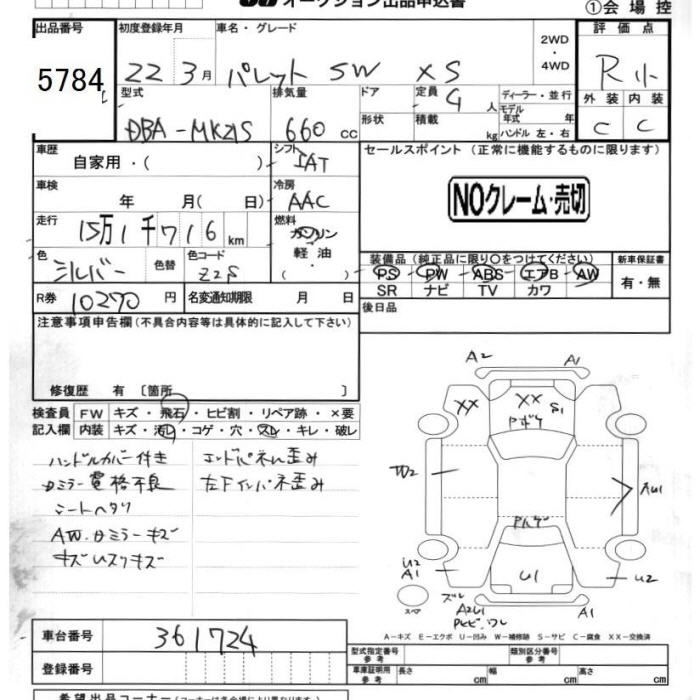 オークション出品申込書
①会場控
出品番号 初度登録年月 車名・グレード 2WD・4WD 評価点
5784 22 3月 パレット SW XS R小
型式 排気量 ドア 定員 4人 ディーラー・並行 外装 内装
DBA-MK21S 660cc 形状 積載 kg モデル年式 年 ハンドル 左・右 C C
車歴 自家用・( ) シフト IAT セールスポイント(正常に機能するものに限ります)
車検 年 月(日) 冷房 AAC NOクレーム・売切
走行 15万1千716km 燃料 ガソリン 軽油・( )
装備品(純正品に限り○をつけてください) 新車保証書
色 シルバー 色替 色コード Z2S PS PW ABS エアB AW 有・無
SR ナビ TV カワ
R券 10270円 名変通知期限 月 日 後日品
注意事項申告欄(不具合内容等は具体的に記入して下さい)
修復歴 有〔箇所 〕
検査員 FW キズ・飛石・ヒビ割・リペア跡・×要
記入欄 内装 キズ・汚れ・コゲ・穴・スレ・キレ・破レ
ハンドルカバー付き エンドパネル歪み
ミラー電格不良 左下インパネ歪み
シートヘタリ
AW・ミラーキズ
A2 A1
XX XX S1
W2 AU1
U2 A1 U1 U2
スペア A2U1 A1
A-キズ E-エクボ U-凹み W-補修跡 S-サビ C-腐食 XX-交換済
車台番号 361724 型式指定番号 参考 類別区分番号 参考
登録番号 車庫証明用 参考 長さ cm 幅 cm 高さ cm
希望出品コーナー